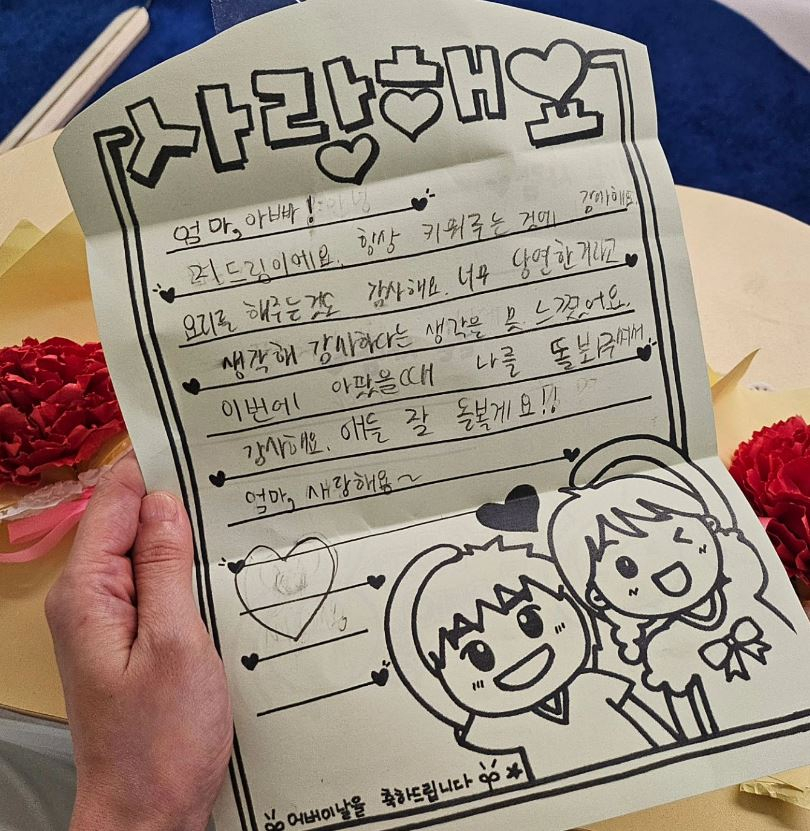 사랑해요
엄마, 아빠!
저 드림이에요. 항상 키워주는 것에 감사해요.
요리를 해주는것도 감사해요. 너무 당연한거라고
생각해 감사하다는 생각을 못 느꼈어요.
이번에 아팠을때 나를 돌봐주셔서
감사해요. 애들 잘 돌볼게요!!
엄마, 사랑해용~
어버이날을 축하드립니다